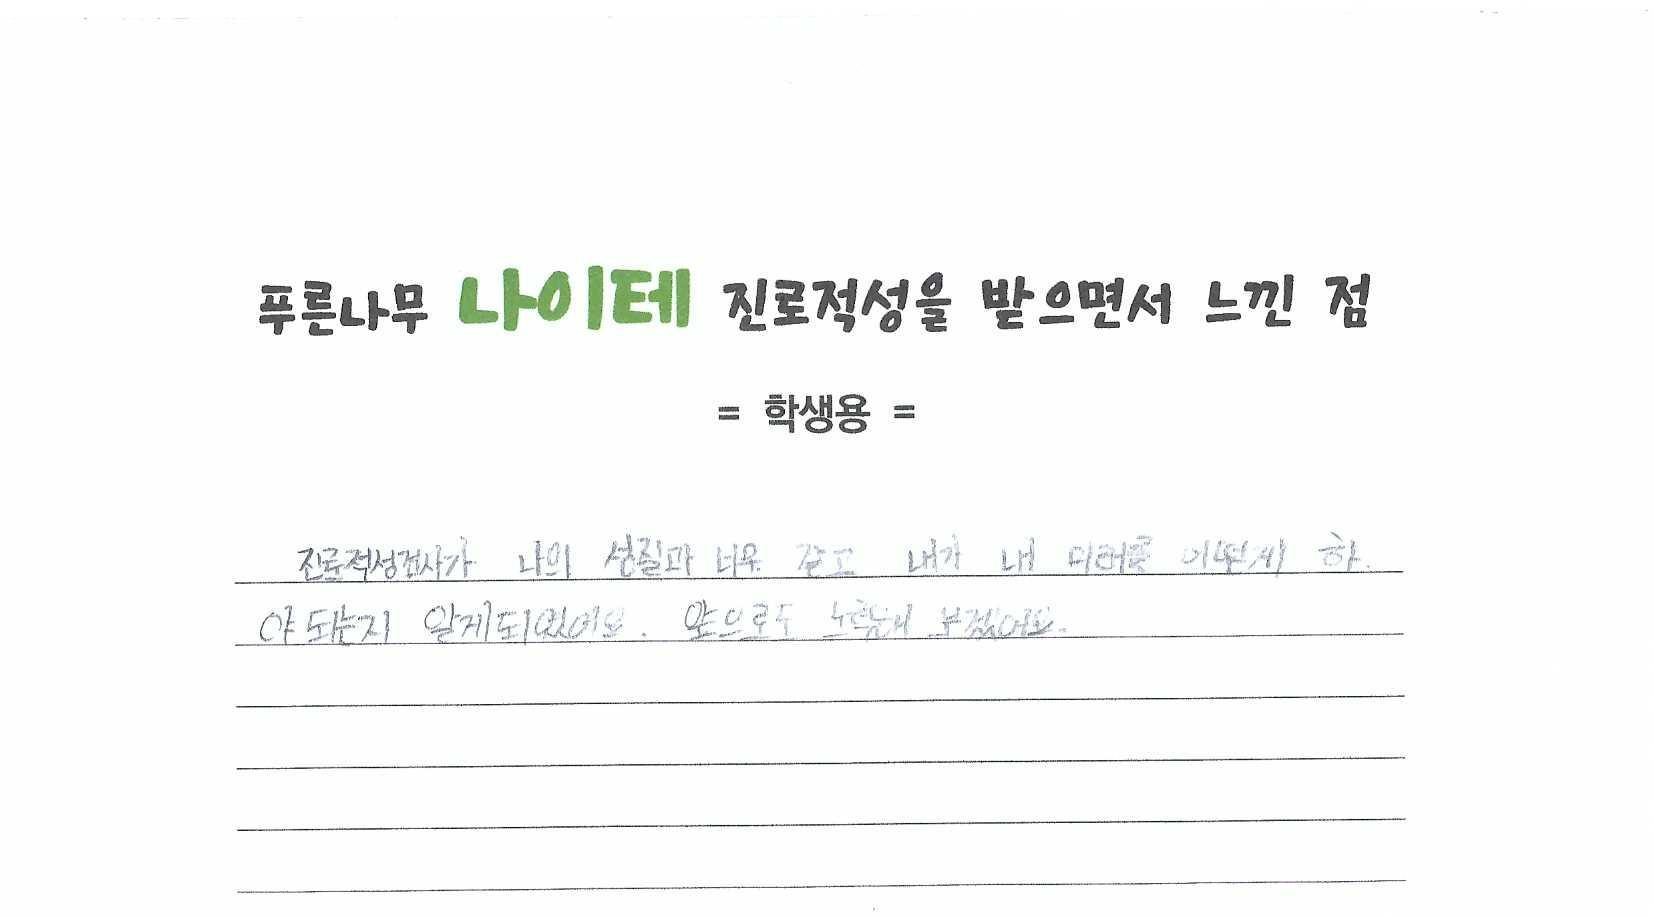 푸른나무 나이테 진로적성을 받으면서 느낀 점
= 학생용 =
진로적성검사가 나의 성질과 너무 같고 내가 내 미래를 어떻게 하
야 되는지 알게되었어요. 앞으로도